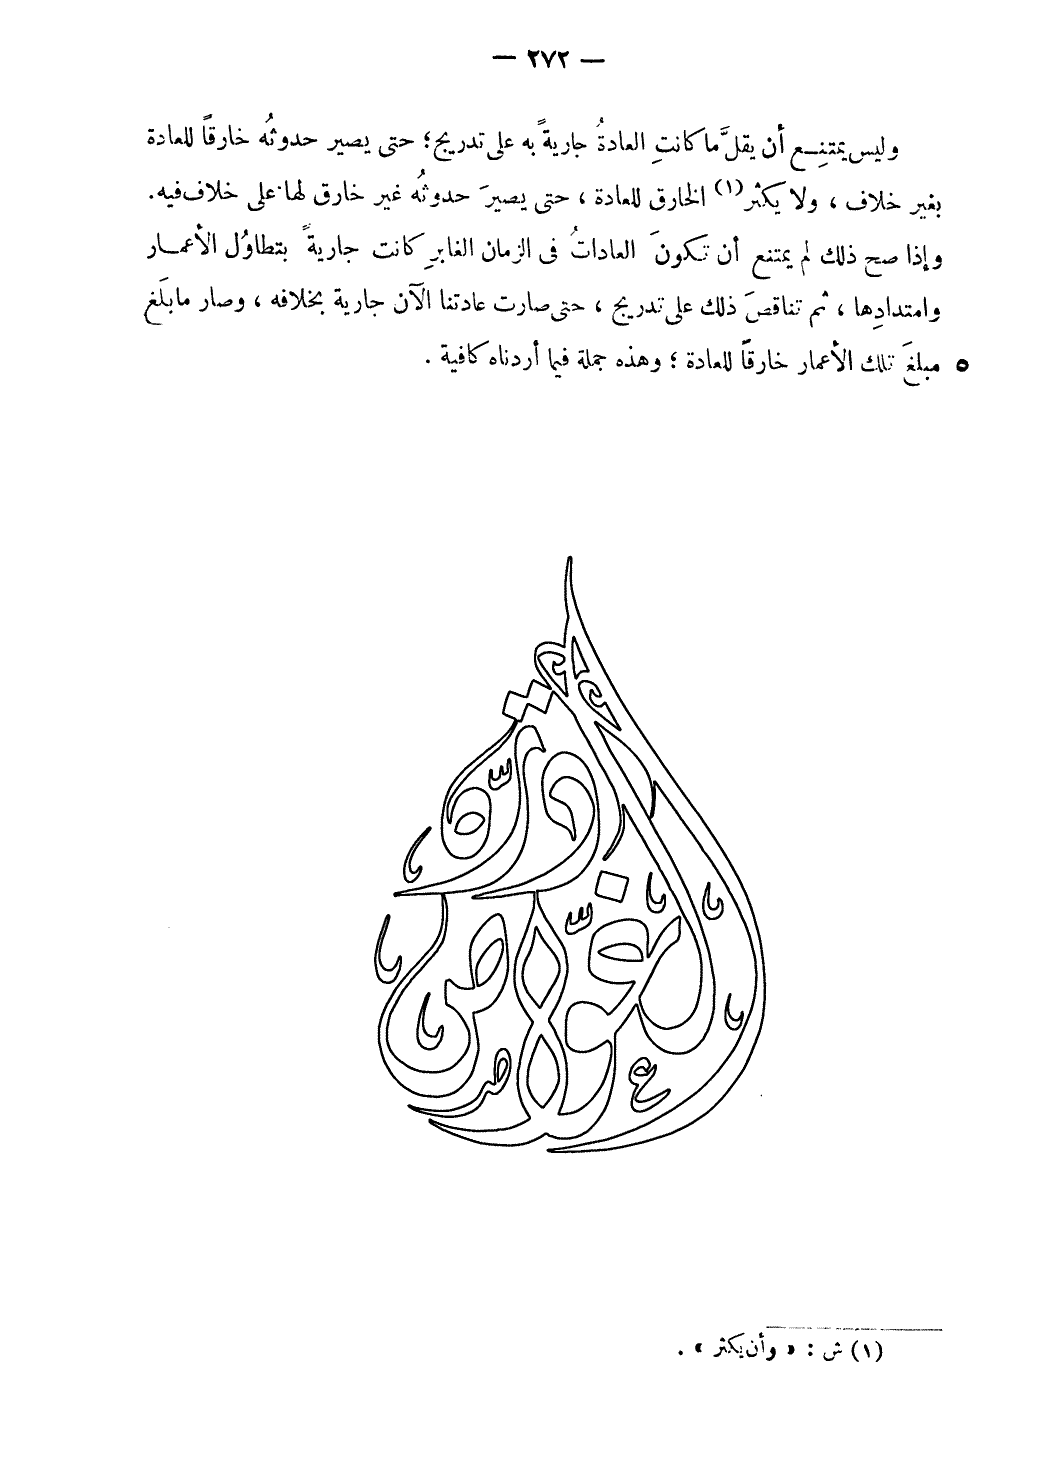 — ٢٧٢ —
وليس يمتنِع أن يقلَّ ما كانتِ العادةُ جاريةً به على تدريج؛ حتى يصير حدوثُه خارقاً للعادة
بغير خلاف ، ولا يكثر(١) الخارق للعادة ، حتى يصيرَ حدوثُه غير خارق لها على خلاف فيه.
وإذا صح ذلك لم يمتنع أن تكونَ العاداتُ فى الزمان الغابرِ كانت جاريةً بتطاوُل الأعمار
وامتدادِها ، ثم تناقصَ ذلك على تدريج ، حتى صارت عادتنا الآن جارية بخلافه ، وصار ما بلَغ
مبلغَ تلك الأعمار خارقاً للعادة ؛ وهذه جملة فيما أردناه كافية . ٥
درة
الغواص
(١) ش : « وأن يكثر » .